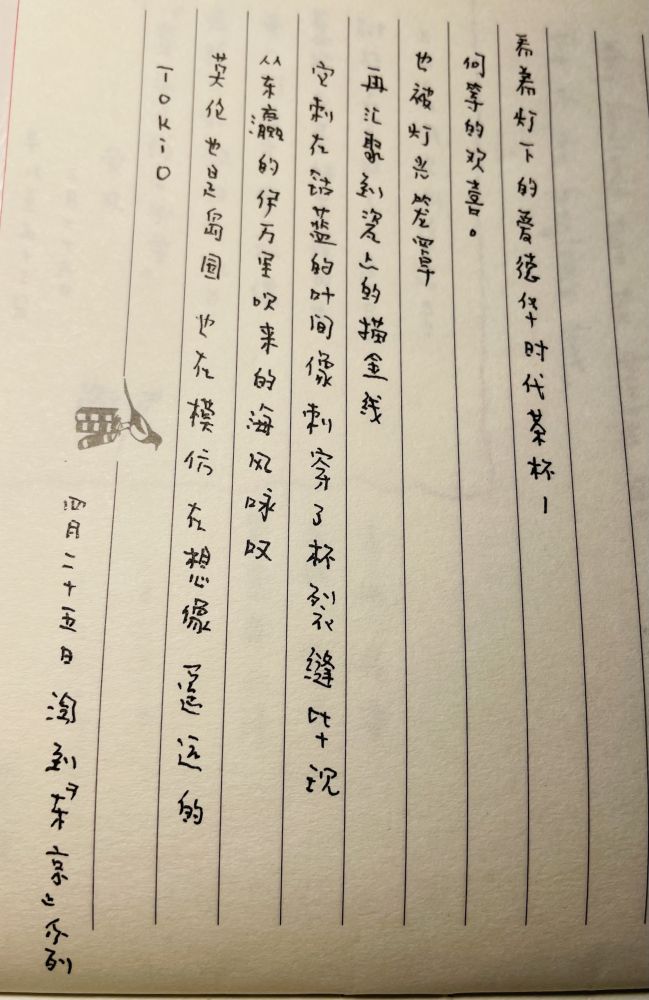 灯下的爱德华时代茶杯！
何等的欢喜。
也被灯光笼罩
再汇聚到瓷上的描金线
它刺在钴蓝的叶间像刺穿了杯裂缝 毕现
从东瀛的伊万里吹来的海风咏叹
英伦也是岛国 也在模仿 在想像 遥远的
TOKIO
四月二十五日 淘到“东京”系列